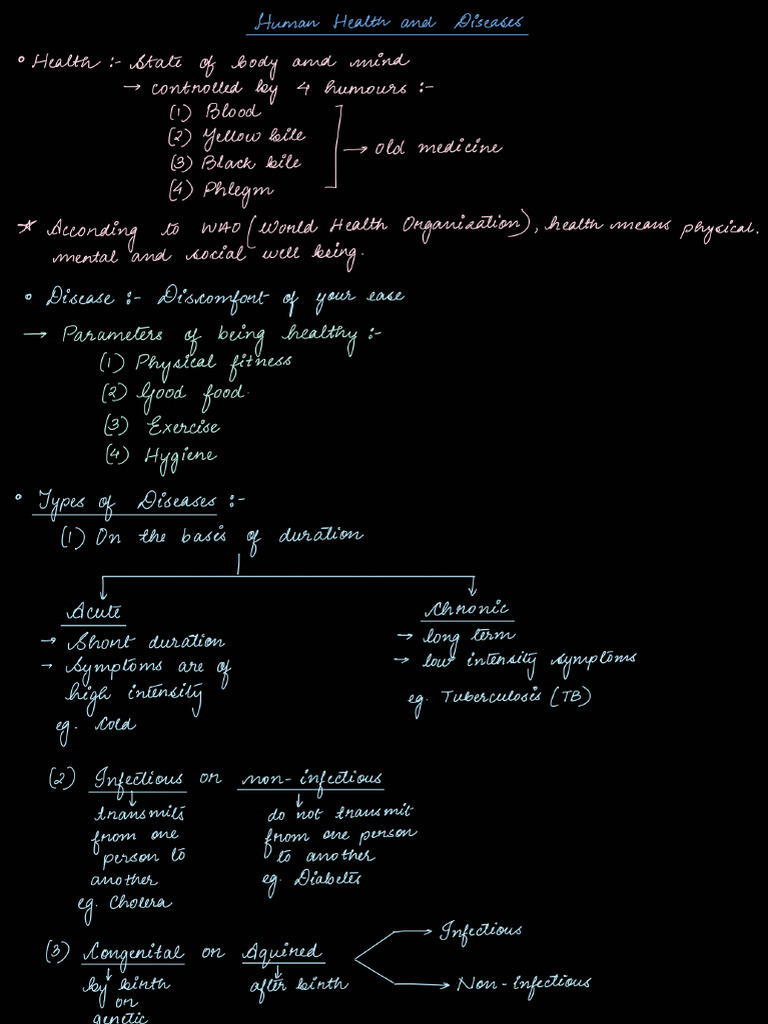 Human Health and Diseases
• Health :- State of body and mind
→ controlled by 4 humours :-
(1) Blood
(2) Yellow bile
(3) Black bile
(4) Phlegm
→ Old medicine
* According to WHO (World Health Organization), health means physical.
mental and social well being.
• Disease :- Discomfort of your ease
→ Parameters of being healthy :-
(1) Physical fitness
(2) Good food.
(3) Exercise
(4) Hygiene
• Types of Diseases :-
(1) On the basis of duration
Acute
→ Short duration
→ Symptoms are of
high intensity
eg. Cold
Chronic
→ long term
→ low intensity symptoms
eg. Tuberculosis (TB)
(2) Infectious or non-infectious
transmits
from one
person to
another
eg. Cholera
do not transmit
from one person
to another
eg. Diabetes
(3) Congenital or Aquired
→ Infectious
→ Non-infectious
by birth
or
genetic
after birth